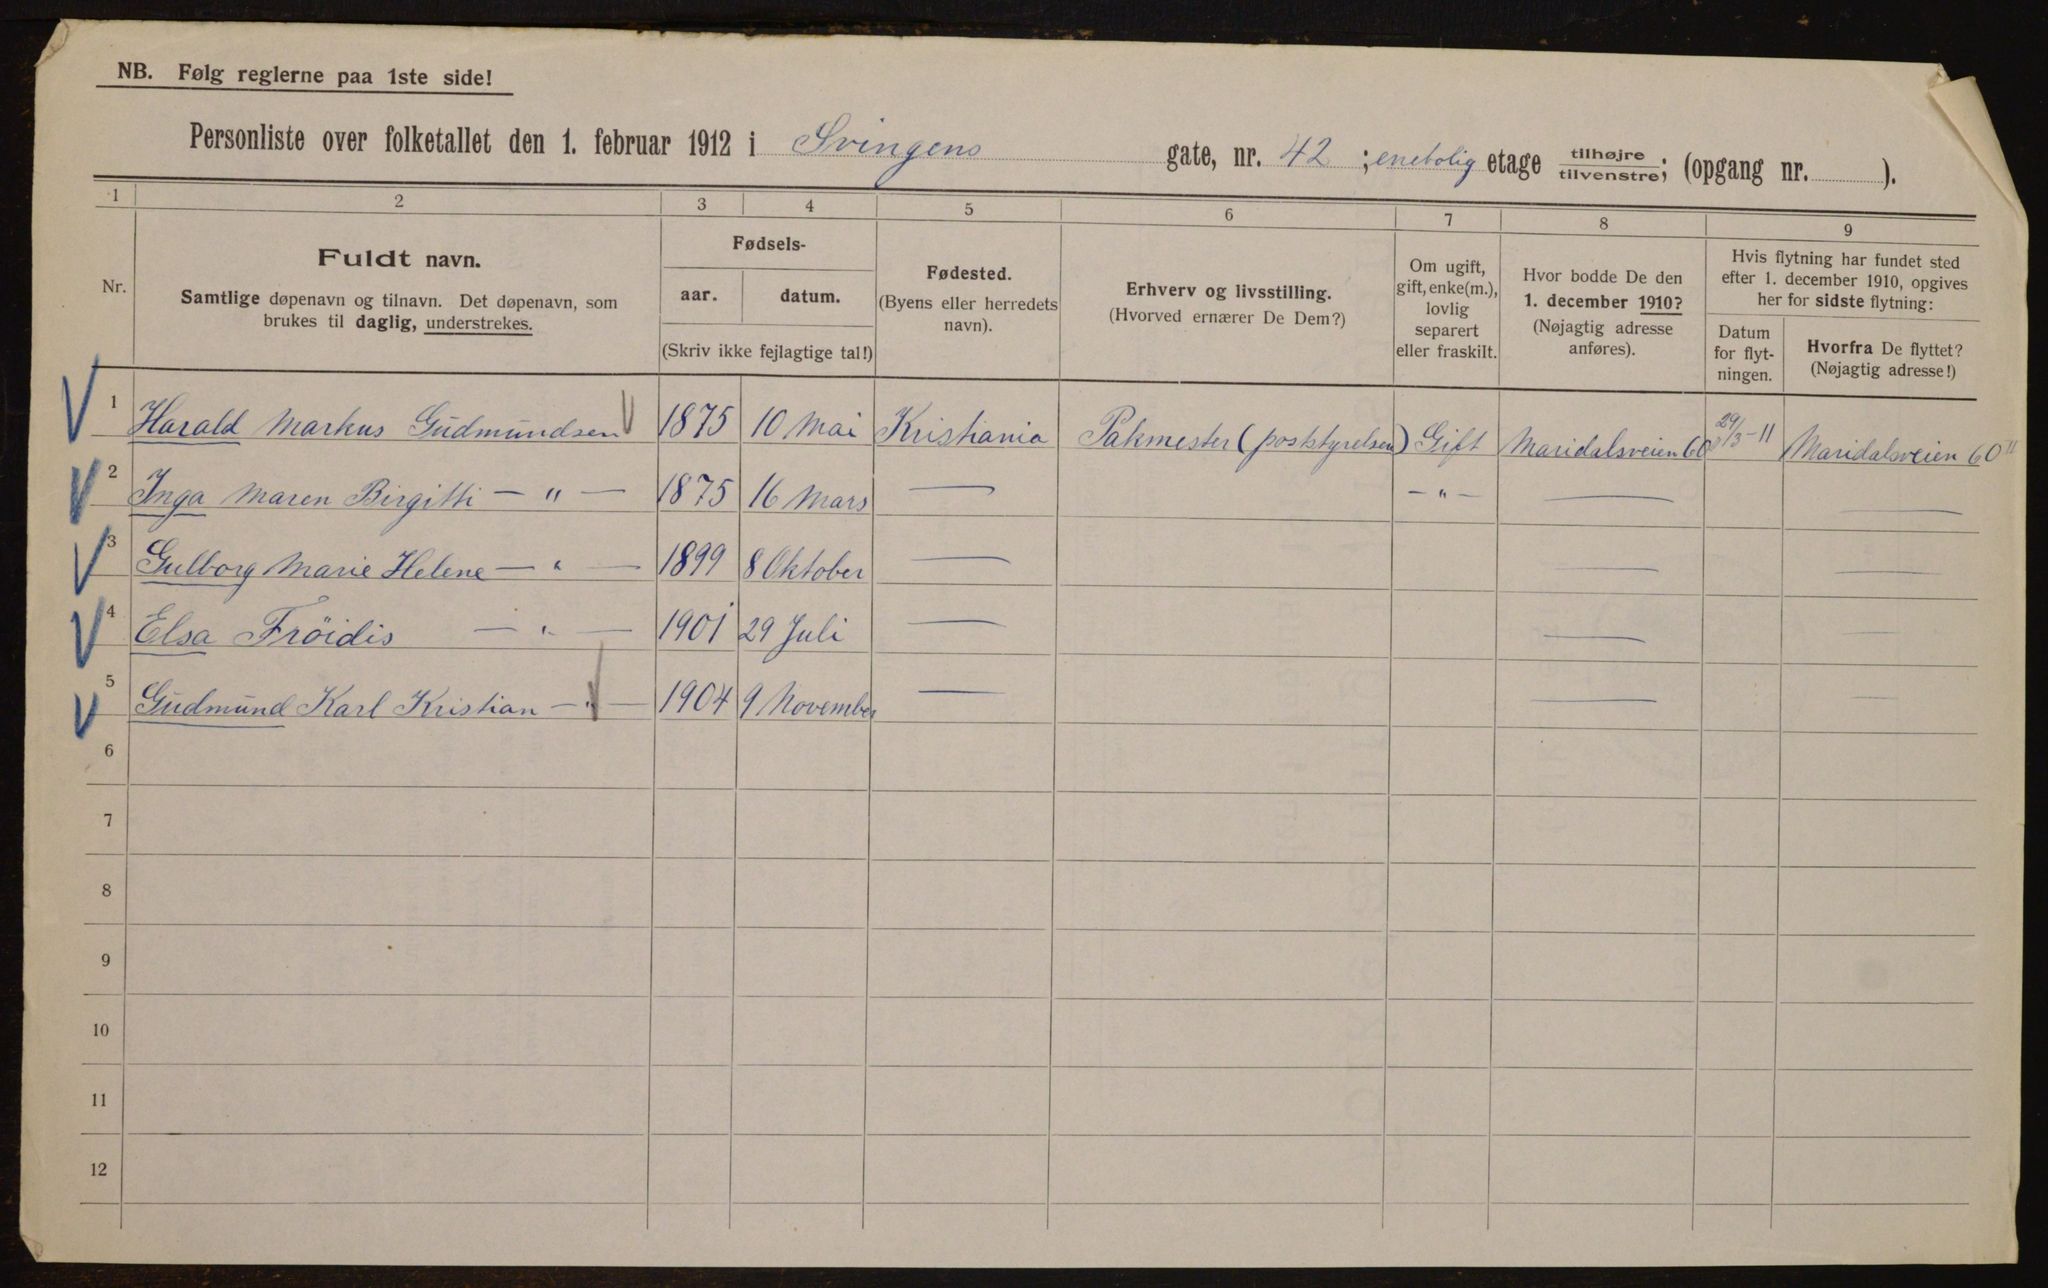 NB. Følg reglerne paa 1ste side!
Personliste over folketallet den 1. februar 1912 i Svingens gate, nr. 42 ; enebolig etage tilhøjre tilvenstre; (opgang nr. ).
1 2 3 4 5 6 7 8 9
Nr.
Fuldt navn.
Samtlige døpenavn og tilnavn. Det døpenavn, som
brukes til daglig, understrekes.
Fødsels-
aar. datum.
(Skriv ikke fejlagtige tal!)
Fødested.
(Byens eller herredets
navn).
Erhverv og livsstilling.
(Hvorved ernærer De Dem?)
Om ugift,
gift, enke(m.),
lovlig
separert
eller fraskilt.
Hvor bodde De den
1. december 1910?
(Nøjagtig adresse
anføres).
Hvis flytning har fundet sted
efter 1. december 1910, opgives
her for sidste flytning:
Datum
for flyt-
ningen.
Hvorfra De flyttet?
(Nøjagtig adresse!)
1 Harald Markus Gudmundsen 1875 10 Mai Kristiania Pakmester (poststyrelsen) Gift Maridalsveien 60 29/3-11 Maridalsveien 60 II
2 Inga Maren Birgitti — " — 1875 16 Mars — — " — — —
3 Gulborg Marie Helene — " — 1899 8 Oktober — — —
4 Elsa Fröidis — " — 1901 29 Juli — — —
5 Gudmund Karl Kristian — " — 1904 9 November — — —
6
7
8
9
10
11
12